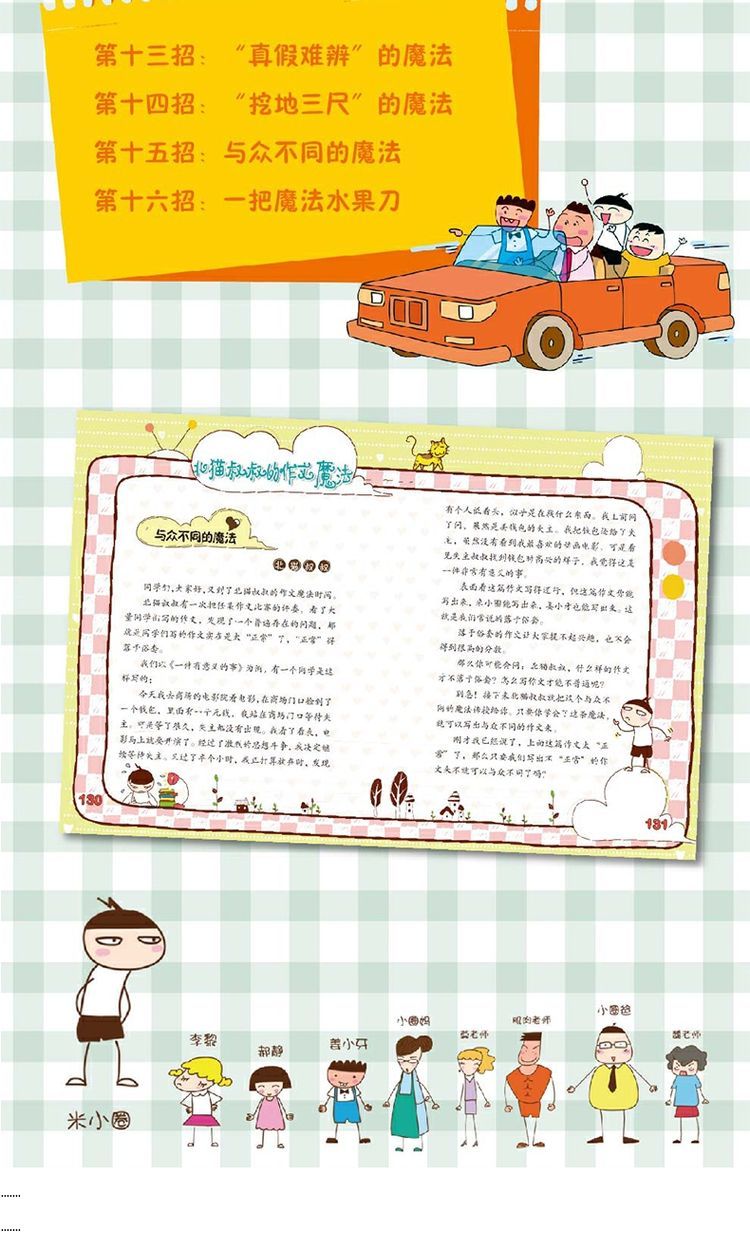 第十三招：“真假难辨”的魔法
第十四招：“挖地三尺”的魔法
第十五招：与众不同的魔法
第十六招：一把魔法水果刀
北猫叔叔的作文魔法
与众不同的魔法
北猫叔叔
同学们，大家好，又到了北猫叔叔的作文魔法时间。
北猫叔叔有一次担任某作文比赛的评委。看了大
量同学们写的作文，发现了一个普遍存在的问题，那
就是同学们写的作文实在是太“正常”了，“正常”得
落于俗套。
我们以《一件有意义的事》为例，有一个同学是这
样写的：
今天我去商场的电影院看电影，在商场门口捡到了
一个钱包，里面有一千元钱，我站在商场门口等待失
主。可是等了很久，失主都没有出现。我看了看表，电
影马上就要开演了。经过了激烈的思想斗争，我决定继
续等待失主。又过了半个小时，我正打算放弃时，发现
130
有个人低着头，似乎是在找什么东西。我上前问
了问，果然是丢钱包的失主。我把钱包还给了失
主，虽然没有看到我最喜欢的动画电影，可是看
见失主叔叔找到钱包时高兴的样子，我觉得这是
一件非常有意义的事。
表面看这篇作文写得还行，但这篇作文你能
写出来，米小圈能写出来，姜小牙也能写出来。这
就是我们常说的落于俗套。
落于俗套的作文让大家提不起兴趣，也不会
得到很高的分数。
那么你可能会问：北猫叔叔，什么样的作文
才不落于俗套？怎么写作文才能不普通呢？
别急！接下来北猫叔叔就把这个与众不
同的魔法传授给你。只要你学会了这条魔法，
就可以写出与众不同的作文来。
刚才我已然说了，上面这篇作文太“正
常”了，那么只要我们写出不“正常”的作
文来不就可以与众不同了吗？
131
米小圈
李黎
郝静
姜小牙
小圈妈
莫老师
肌肉老师
小圈爸
魏老师
.......
.......